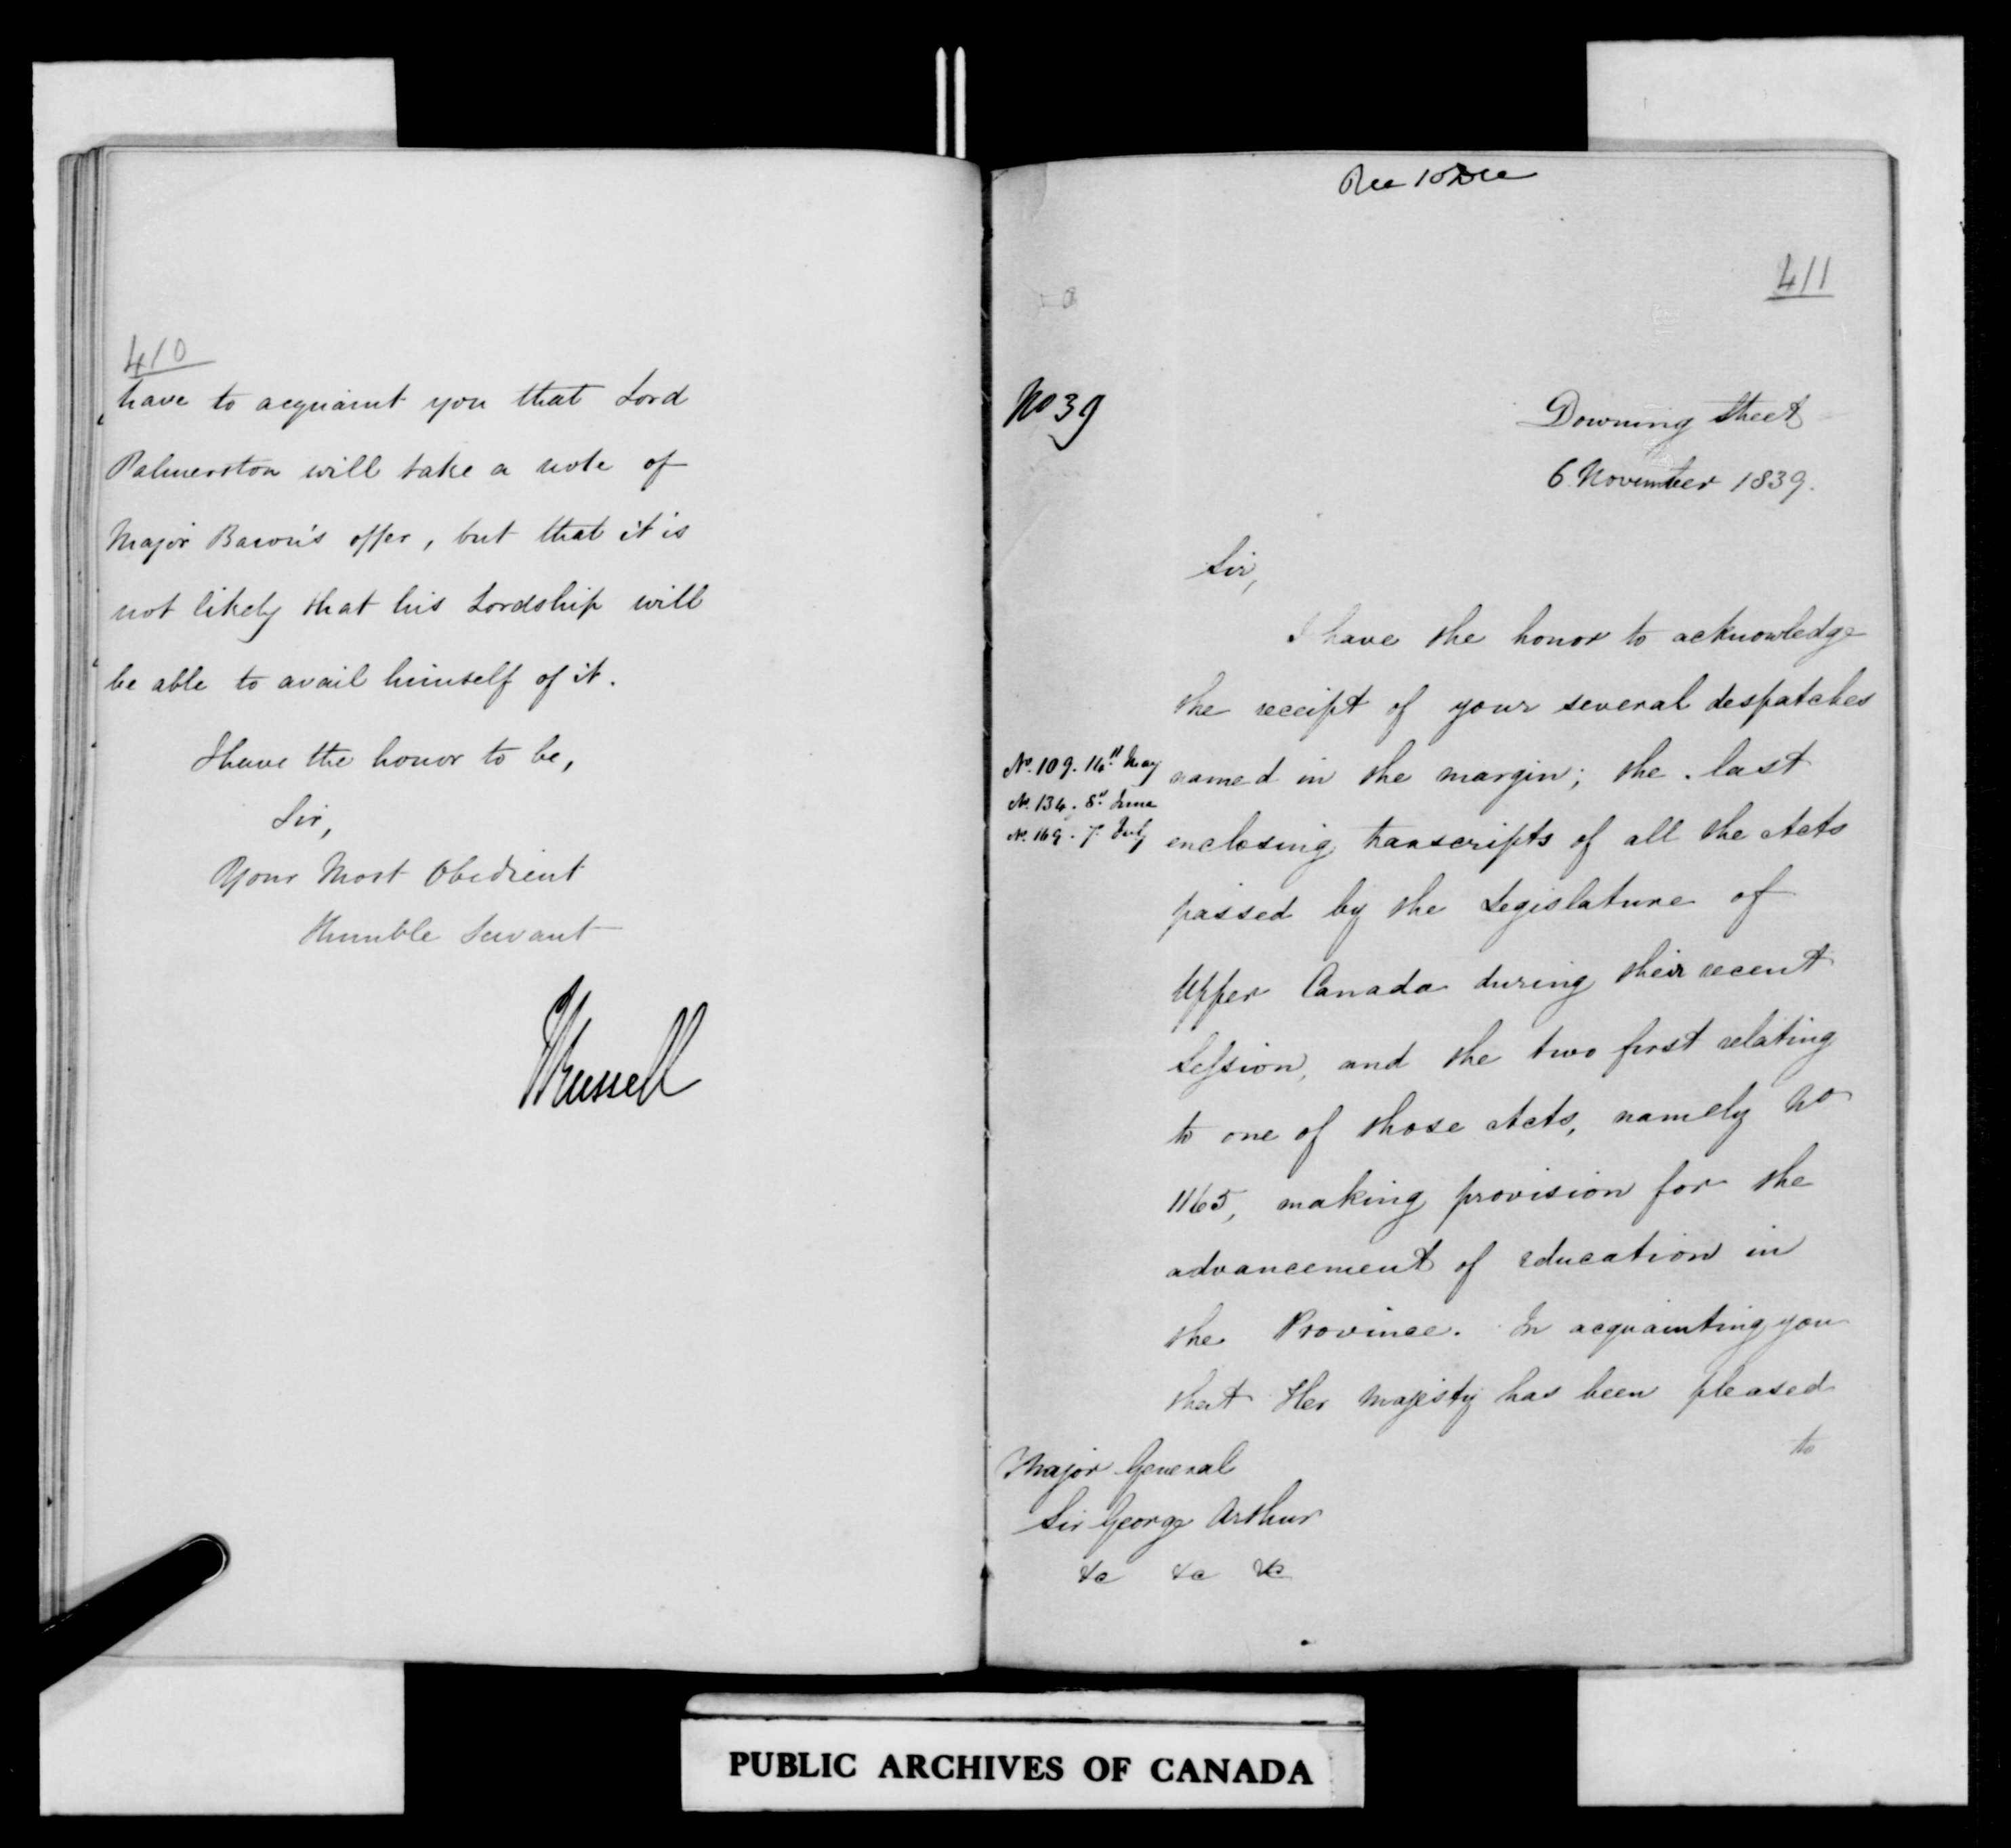 410
have to acquaint you that Lord
Palmerston will take a note of
Major Baron's offer, but that it is
not likely that his Lordship will
be able to avail himself of it.
I have the honor to be,
Sir,
Your Most Obedient
Humble Servant
JRussell
Rec 10 Dec
411
No 39
Downing Street
6 November 1839.
Sir,
I have the honor to acknowledge
the receipt of your several despatches
No. 109. 14th May
No. 134. 8th June
No. 169. 7. July
named in the margin; the last
enclosing transcripts of all the Acts
passed by the Legislature of
Upper Canada during their recent
Session, and the two first relating
to one of those Acts, namely No
1165, making provision for the
advancement of education in
the Province. In acquainting you
that Her Majesty has been pleased
to
Major General
Sir George Arthur
&c &c &c
PUBLIC ARCHIVES OF CANADA